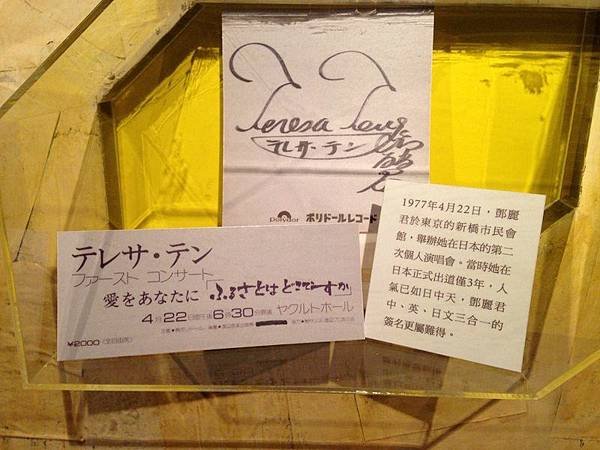 Teresa Teng
テレサ・テン
鄧麗君
Polydor ポリドールレコード
テレサ・テン
ファースト コンサート
愛をあなたに「ふるさとはどこですか」
4月22日㊎午後6時30分開演 ヤクルトホール
¥2000〈全自由席〉
1977年4月22日，鄧麗
君於東京的新橋市民會
館，舉辦她在日本的第二
次個人演唱會。當時她在
日本正式出道僅3年，人
氣已如日中天，鄧麗君
中、英、日文三合一的
簽名更屬難得。